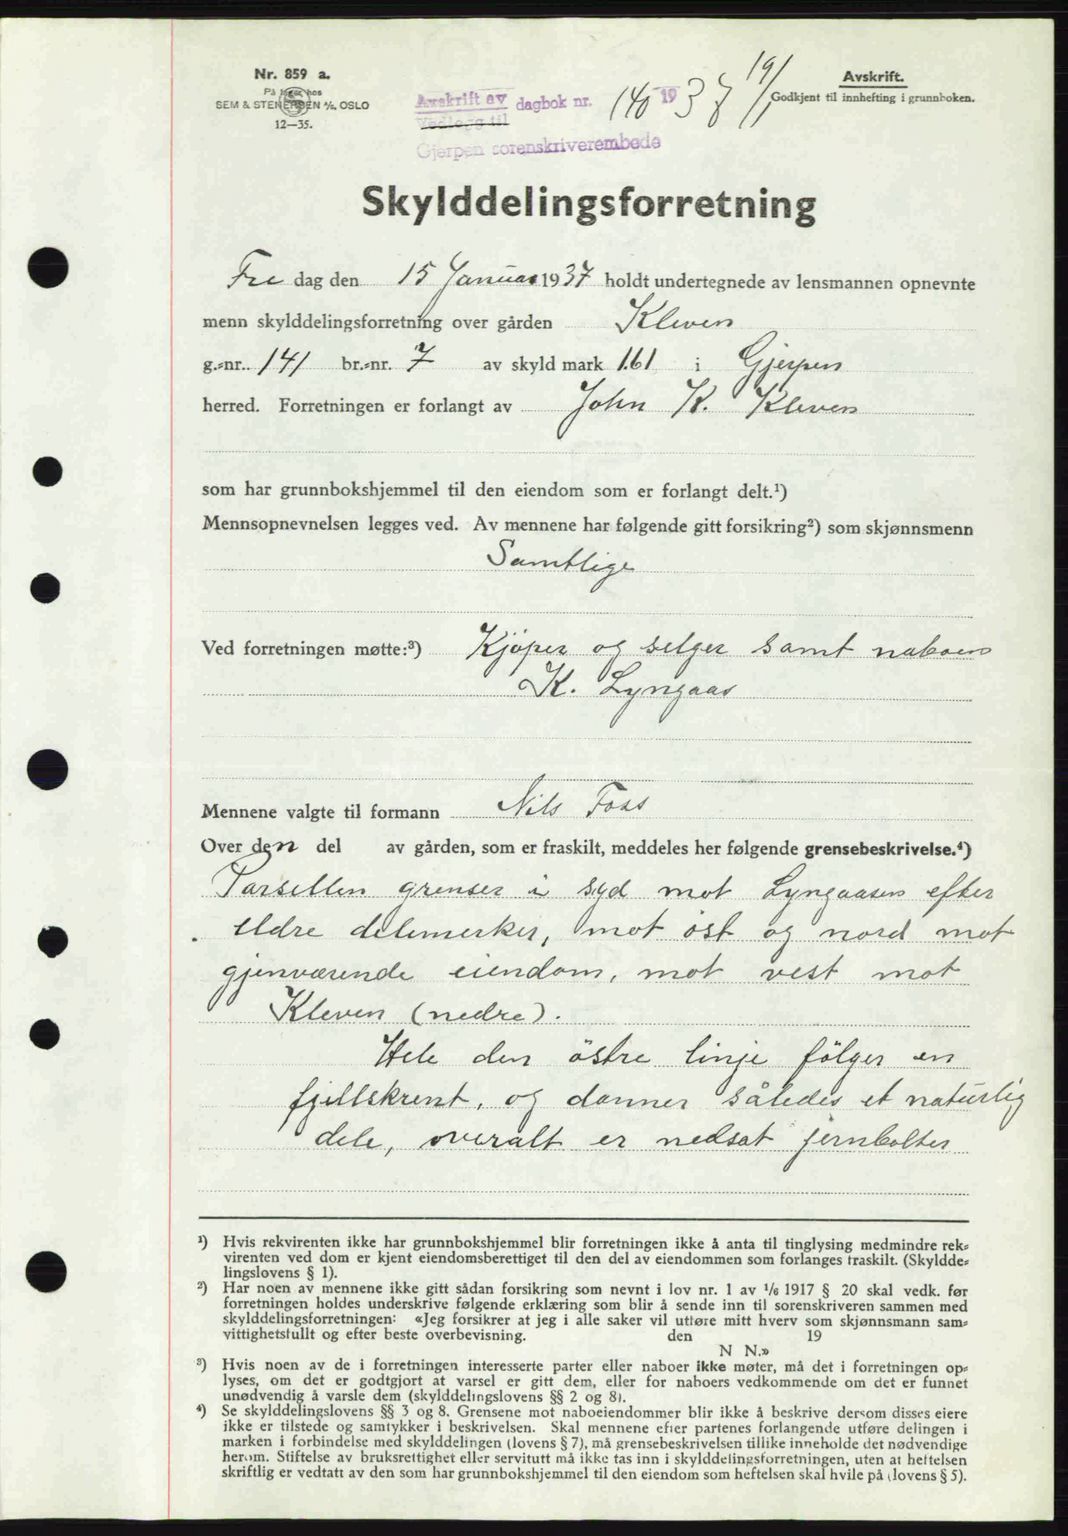 Nr. 859 a.
På lager hos
SEM & STENERSEN A/S, OSLO
12—35.
Avskrift av
Vedlegg til
dagbok nr. 140 1937 19/1
Gjerpen sorenskriverembede
Avskrift.
Godkjent til innhefting i grunnboken.
Skylddelingsforretning
Fre dag den 15 Januar 1937 holdt undertegnede av lensmannen opnevnte
menn skylddelingsforretning over gården Kleven
g.-nr. 141 br.-nr. 7 av skyld mark 1.61 i Gjerpen
herred. Forretningen er forlangt av John K. Kleven
som har grunnbokshjemmel til den eiendom som er forlangt delt.¹)
Mennsopnevnelsen legges ved. Av mennene har følgende gitt forsikring²) som skjønnsmenn
Samtlige
Ved forretningen møtte:³) Kjöper og selger samt naboen
K. Lyngaas
Mennene valgte til formann Nils Foss
Over den del av gården, som er fraskilt, meddeles her følgende grensebeskrivelse.⁴)
Parsellen grenser i syd mot Lyngaasen efter
eldre delemerker, mot öst og nord mot
gjenværende eiendom, mot vest mot
Kleven (nedre).
Hele den östre linje fölger en
fjellskrent, og danner således et naturlig
dele, overalt er nedsat jernbolter
¹) Hvis rekvirenten ikke har grunnbokshjemmel blir forretningen ikke å anta til tinglysing medmindre rek-
virenten ved dom er kjent eiendomsberettiget til den del av eiendommen som forlanges fraskilt. (Skyldde-
lingslovens § 1).
²) Har noen av mennene ikke gitt sådan forsikring som nevnt i lov nr. 1 av 1/6 1917 § 20 skal vedk. før
forretningen holdes underskrive følgende erklæring som blir å sende inn til sorenskriveren sammen med
skylddelingsforretningen: «Jeg forsikrer at jeg i alle saker vil utføre mitt hverv som skjønnsmann sam-
vittighetsfullt og efter beste overbevisning. den 19
N N.»
³) Hvis noen av de i forretningen interesserte parter eller naboer ikke møter, må det i forretningen op-
lyses, om det er godtgjort at varsel er gitt dem, eller for naboers vedkommende om det er funnet
unødvendig å varsle dem (skylddelingslovens §§ 2 og 8).
⁴) Se skylddelingslovens §§ 3 og 8. Grensene mot naboeiendommer blir ikke å beskrive dersom disses eiere
ikke er tilstede og samtykker i beskrivelsen. Skal mennene efter partenes forlangende utføre delingen i
marken i forbindelse med skylddelingen (lovens § 7), må grensebeskrivelsen tillike inneholde det nødvendige
herom. Stiftelse av bruksrettighet eller servitutt må ikke tas inn i skylddelingsforretningen, uten at heftelsen
skriftlig er vedtatt av den som har grunnbokshjemmel til den eiendom som heftelsen skal hvile på (lovens § 5).